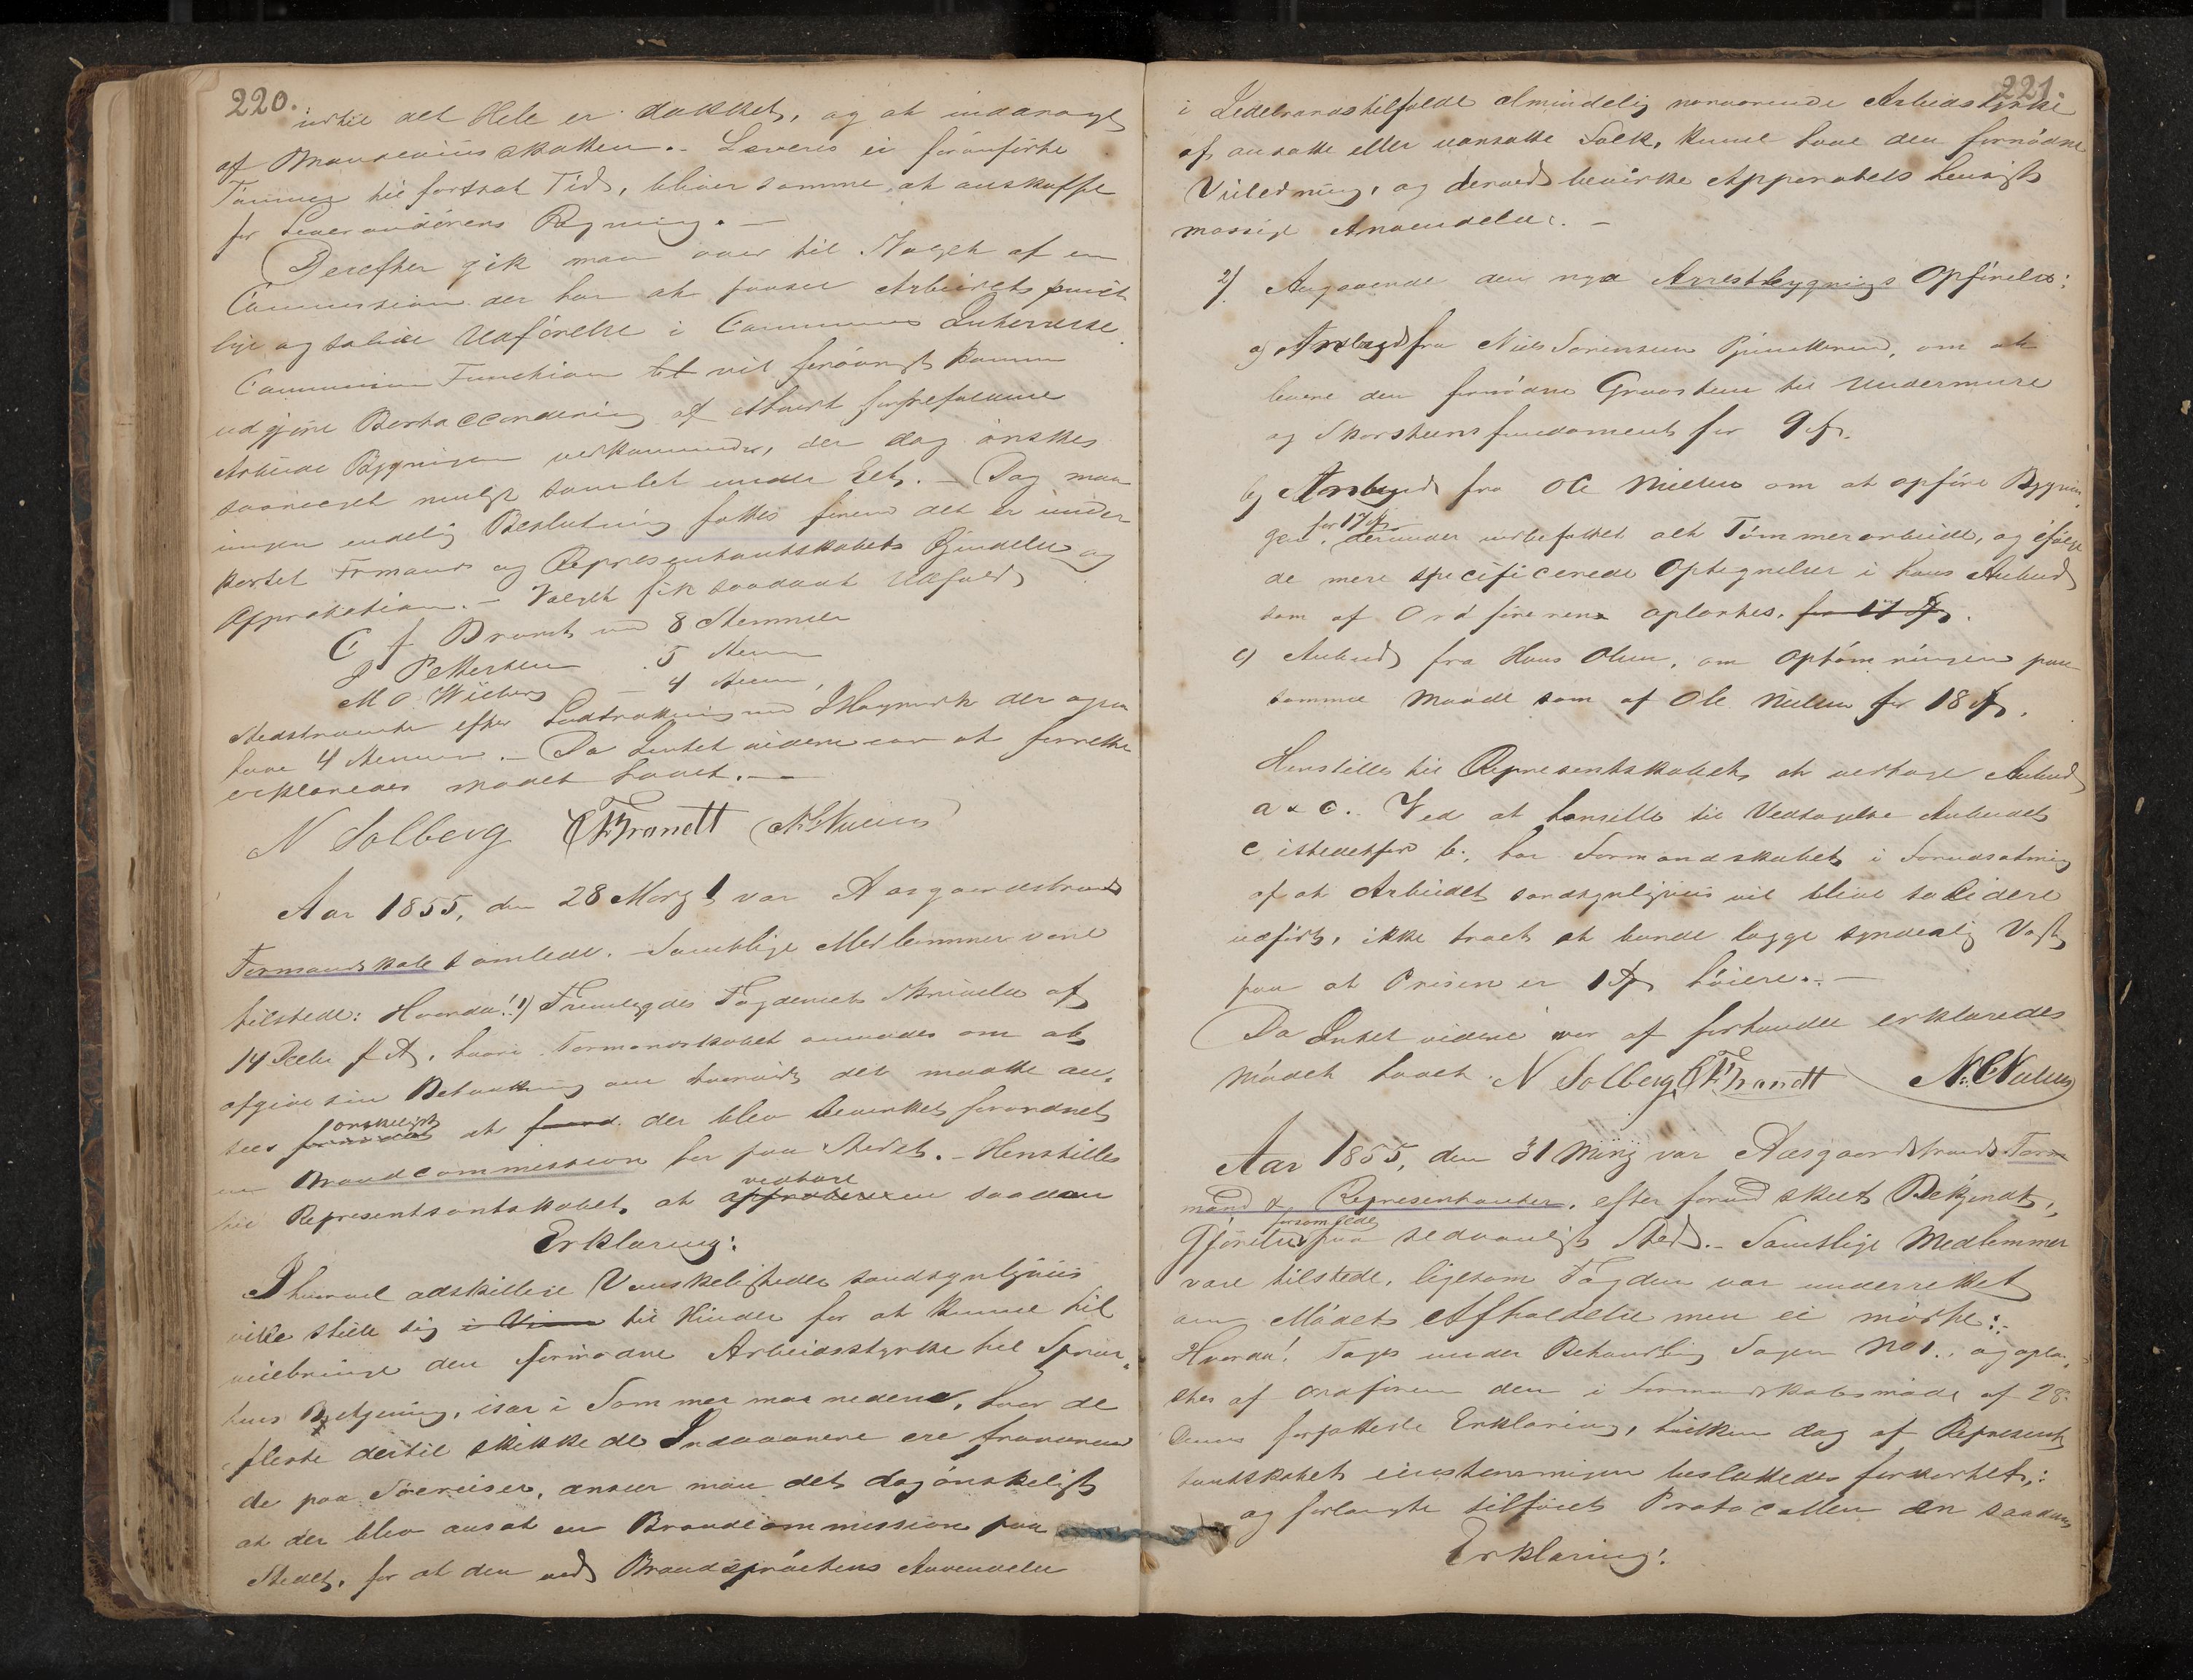 220.
indtil det Hele er dækket, og at inddraget
af Mandeviis skatten. Leveres ei föranförte
Tömmer til fortsat Tid, bliver samme at anskaffe
for Leverandörens Regning. —
Derefter gik man over til Valget af en
Commission der har at paasee Arbeidets punct
lige og solide Udförelse i Communens Interesse.
Commissionens Function vil forövrigt komme
udgjöre Bortaccordering af
Arbeide Bygningen vedkommende, der dog önskes
saavidt muligt samlet under Eet. — Dog maa
ingen endelig Beslutning fattes forend det er under
kastet Formands og Representantskabets Kjendelse og
Approbation. — Valget fik saadant Udfald
C F Brandt med 8 Stemmer
J Pettersen 5 Stem
M O Wiebers — 4 Stem,
Medstræmte efter Lodtrækning med der ogsaa
have 4 Stemmer. — Da Intet videre var at forrette
erklæredes mödet hævet. —
N Solberg CFBrandt N. C. Nielsen
Aar 1855, den 28 Marz var Aasgaardstrands
Formandskab samlede. — Samtlige Medlemmer vare
tilstede: Hvorda! 1) Fremlagdes Fogderiets Skrivelse af
14 Decbr f A, hvori Formandskabet anmodes om at
afgive sin Betænkning om hvorvidt det maatte an-
sees önskeligt at der blev bevirket forordnet
en Brandcommission her paa Stedet. — Henstilles
til Representsantskabet, at vedtage en saadan
Erklæring:
Ihvorvel adskillige Vanskeligheder sandsynligviis
ville stille sig til Hinder for at kunne til
veiebringe den fornödne Arbeidsstyrke til Spröi-
tens Betjening, især i Sommermaanederne, hvor de
fleste dertil skikkede Indvaanere ere fraværen
de paa Söereiser, anseer man det dog önskeligt
at der blev ansat en Brandcommission paa
Stedet, for at den ved Brandspröitens Anvendelse
221.
i Ildebrandstilfælde almindelig nærværende Arbeidsstyrke
af ansatte eller uansatte Folk, kunne have den fornödne
Veiledning, og derved bevirke Apparatets hensigts
mæssige Anvendelse. —
2) Angaaende den nye Arrestbygnings Opförelse:
a) Anbud fra Niels Sörensen, om at
levere den fornödne Graasteen til Undermure
og Skorsteensfundament for 9 Sp.
b) Anbud fra Ole Nielsen om at opföre Bygnin
for 17 Sp
gen, derunder indbefattet alt Tömmerarbeide, og ifölge
de mere specificerede Optegnelser i hans Anbud
som af Ordföreren oplæstes. for 17 Sp.
c) Anbud fra Hans Olsen, om Optömringen paa
samme Maade som af Ole Nielsen for 18 Sp.
Henstilles til Representskabet, at vedtage Anbud
a & c. Ved at henstille til Vedtagelse Anbudet
c istedetfor b, har Formandskabet i Forudsætning
af at Arbeidet sandsynligviis vil blive solidere
udfört, ikke troet at burde lægge synderlig Vægt
paa at Prisen er 1 Sp höiere. —
Da Intet videre var at forhandle erklæredes
Mödet hævet. N Solberg CFBrandt N. C. Nielsen
Aar 1855, den 31 Marz var Aasgaardstrands For
mænd & Representanter, efter forud skeet Bekjendt,
forsamlede
gjörelse paa sedvanligt Sted. — Samtlige Medlemmer
vare tilstede, ligesom Fogden var underrettet
om Mödets Afholdelse men ei mödte:
Hvorda! Toges under Behandling Sagen No 1, og oplæ
stes af Ordföreren den i Formandskabsmöde af 28
Dennes forfattede Erklæring, hvilken dog af Represent
tantskabet eenstemmigen besluttedes forkastet,:
og forlangte tilföiet Protocollen en saadan
Erklæring: